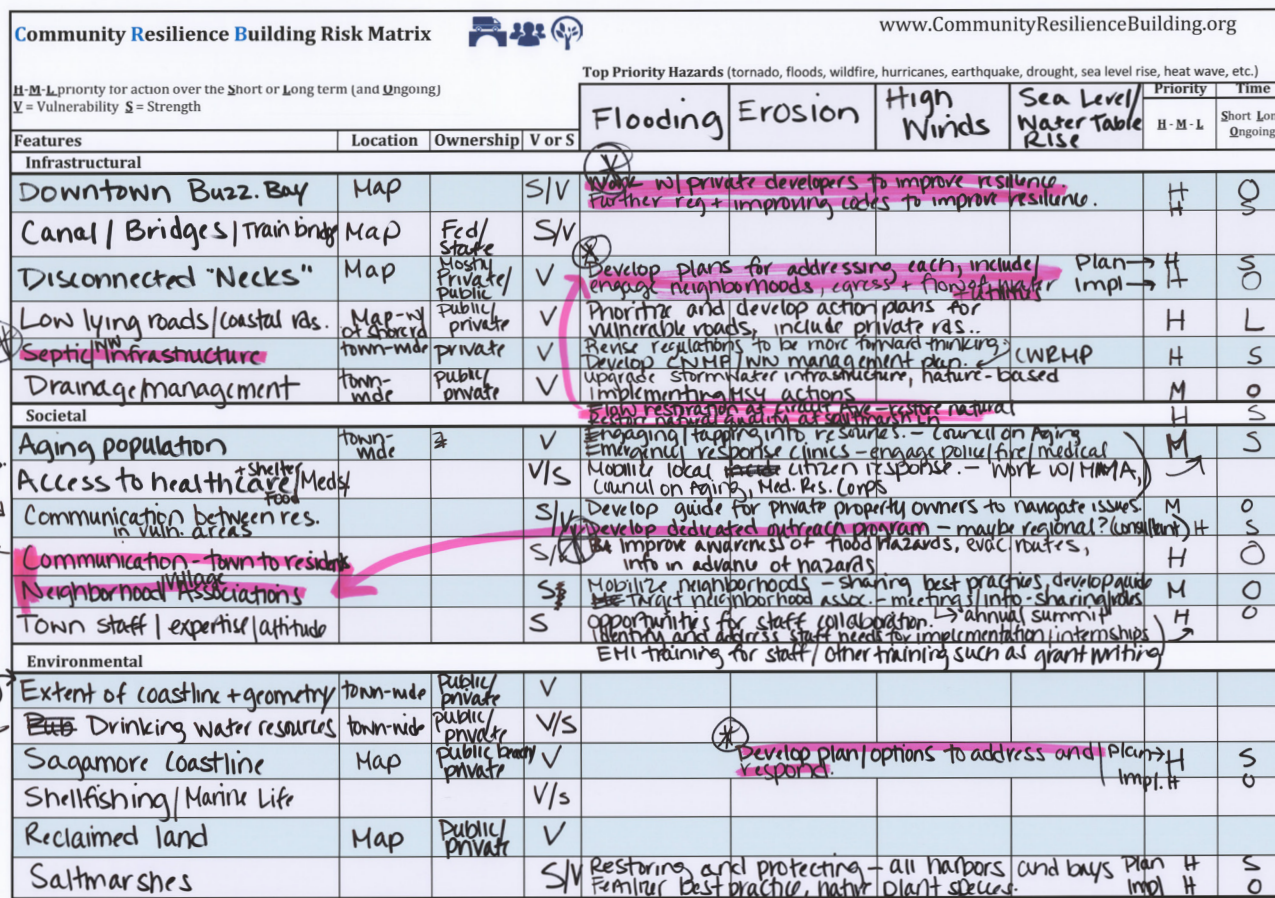 Community Resilience Building Risk Matrix
www.CommunityResilienceBuilding.org
Top Priority Hazards (tornado, floods, wildfire, hurricanes, earthquake, drought, sea level rise, heat wave, etc.)
H-M-L priority for action over the Short or Long term (and Ongoing)
V = Vulnerability S = Strength
Flooding Erosion High Winds Sea Level/ Water Table Rise
Priority Time
H - M - L Short Lon Ongoing
Features Location Ownership V or S
Infrastructural
Downtown Buzz. Bay Map S/V
Work w/ private developers to improve resilience H O
Further reg + improving codes to improve resilience. H S
Canal / Bridges / Train bridge Map Fed/ State S/V
Disconnected "Necks" Map Mostly Private/ Public V
Develop plans for addressing each, include/ Plan→ H S
engage neighborhoods, egress + flow of water Impl→ H O
+ utilities
Low lying roads/coastal rds. Map-w/ public/ private V
Prioritize and develop action plans for
vulnerable roads, include private rds.. H L
Septic/WW infrastructure town-wide private V
Revise regulations to be more forward thinking.
Develop CNMP/WW management plan. CWRMP H S
Drainage/management town-wide Public/ private V
upgrade stormwater infrastructure, nature-based
implementing actions M O
Flow restoration at Circuit Ave - restore natural
Restore natural quality at saltmarsh Ln H S
Societal
Aging population town-wide V
Engaging/tapping into resources. - Council on Aging M S
Emergency response clinics - engage police/fire/medical
Access to healthcare/Meds/ + Shelter Food V/S
Mobilize local citizen response. - Work w/
Council on Aging, Med. Res. Corps
Communication between res. in vuln. areas S/V
Develop guide for private property owners to navigate issues. M O
Develop dedicated outreach program - maybe regional? (consultant) H S
Communication - town to residents S/
improve awareness of flood hazards, evac routes,
info in advance of hazards H O
Neighborhood/Village Associations S
Mobilize neighborhoods - sharing best practices, develop guide M O
Target neighborhood assoc. - meetings/info-sharing/
Town staff / expertise/attitude S
Opportunities for staff collaboration. → annual summit H O
Identify and address staff needs for implementation/internships
EMI training for staff/other training such as grant writing
Environmental
Extent of coastline + geometry town-wide Public/ private V
Drinking water resources town-wide Public/ private V/S
Sagamore Coastline Map Public beach/ private V
Develop plan/options to address and Plan→ H S
respond. Impl. H O
Shellfishing/Marine Life V/S
Reclaimed land Map Public/ private V
Saltmarshes S/V
Restoring and protecting - all harbors and bays Plan H S
Fertilizer best practice, native plant species. Impl H O